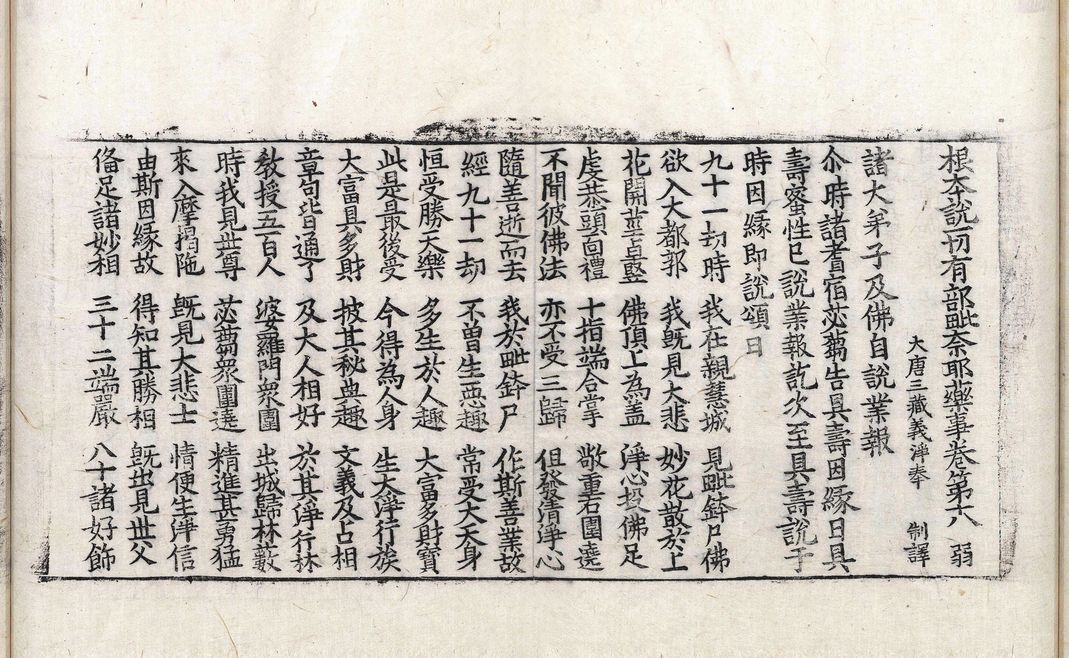 根本說一切有部毗奈耶藥事卷第十八 弱
大唐三藏義淨奉 制譯
諸大弟子及佛自說業報
尒時諸耆宿苾蒭告具壽因緣曰具
壽蜜性已說業報訖次至具壽說于
時因緣即說頌曰
九十一劫時 我在親慧城 見毗鉢尸佛
欲入大都郭 我旣見大悲 妙花散於上
花開莖卓竪 佛頂上為盖 淨心投佛足
虔恭頭面禮 十指端合掌 敬重右圍遶
不聞彼佛法 亦不受三歸 但發清淨心
隨善逝而去 我於毗鉢尸 作斯善業故
經九十一劫 不曾生惡趣 常受大天身
恒受勝天樂 多生於人趣 大富多財寶
此是最後受 今得為人身 生大淨行族
大富具多財 披其秘典趣 文義及占相
章句皆通了 及大人相好 於其淨行林
敎授五百人 婆羅門衆圍 出城歸林藪
時我見世尊 苾蒭衆圍遶 精進甚勇猛
來入摩揭陁 旣見大悲士 情便生淨信
由斯因緣故 得知其勝相 旣出見世父
俻足諸妙相 三十二端嚴 八十諸好飾